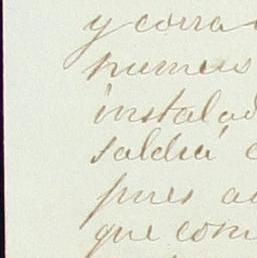 y corra
numeros
instalad
saldrá
pues a
que com